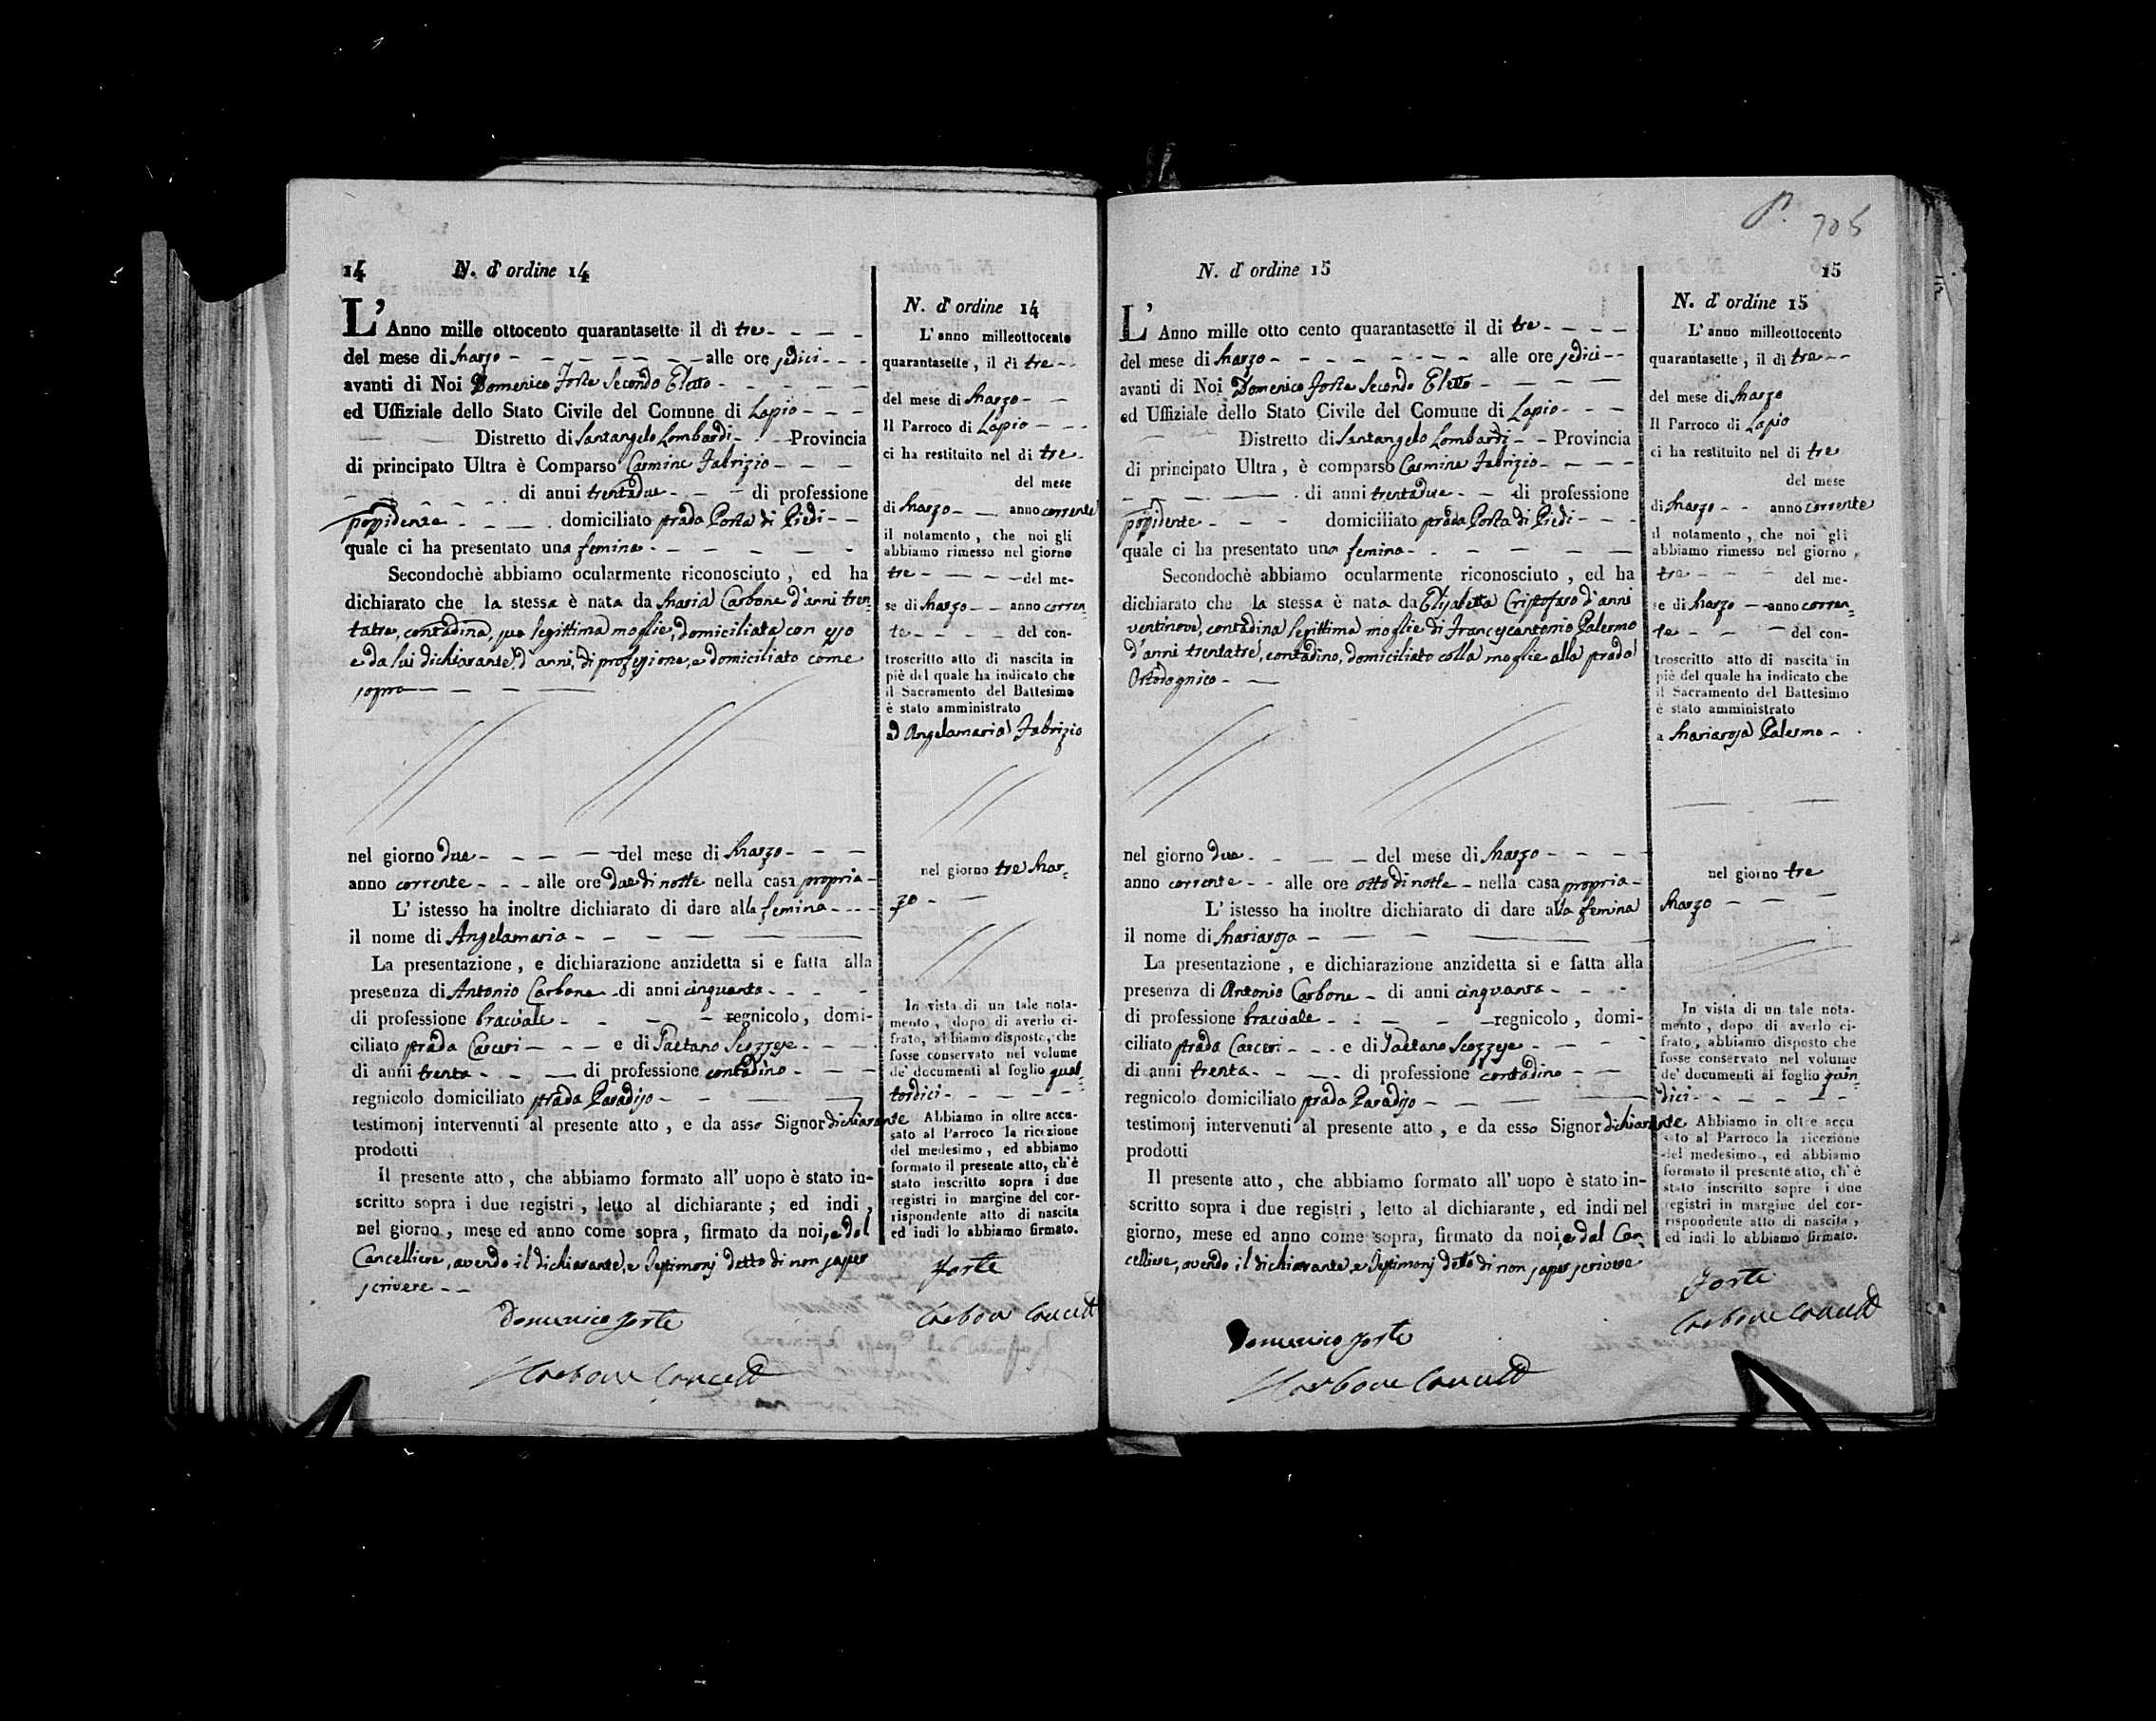 14 N. d'ordine 14
L'Anno mille ottocento quarantasette il di tre
del mese di Marzo alle ore sedici
avanti di Noi Domenico Forte Secondo Eletto
ed Uffiziale dello Stato Civile del Comune di Lapio
Distretto di Santangelo Lombardi Provincia
di principato Ultra è Comparso Carmine Fabrizio
di anni trentadue di professione
possidente domiciliato strada Porta di Piedi
quale ci ha presentato una femina
Secondochè abbiamo ocularmente riconosciuto, ed ha
dichiarato che la stessa è nata da Maria Carbone d'anni tren-
tatre, contadina, sua legittima moglie, domiciliata con esso
e da lui dichiarante d'anni, di professione, e domiciliato come
sopra
nel giorno due del mese di Marzo
anno corrente alle ore due di notte nella casa propria
L' istesso ha inoltre dichiarato di dare alla femina
il nome di Angelamaria
La presentazione, e dichiarazione anzidetta si e fatta alla
presenza di Antonio Carbone di anni cinquanta
di professione bracciale regnicolo, domi-
ciliato strada Carceri e di Gaetano Scozzese
di anni trenta di professione contadino
regnicolo domiciliato strada Paradiso
testimonj intervenuti al presente atto, e da asso Signor dichiarante
prodotti
Il presente atto, che abbiamo formato all' uopo è stato in-
scritto sopra i due registri, letto al dichiarante; ed indi,
nel giorno, mese ed anno come sopra, firmato da noi, e dal
Cancelliere, avendo il dichiarante, e Testimonj detto di non saper
scrivere
Domenico Forte
Carbone Cancell
N. d'ordine 14
L'anno milleottocento
quarantasette, il di tre
del mese di Marzo
Il Parroco di Lapio
ci ha restituito nel di tre
del mese
di Marzo anno corrente
il notamento, che noi gli
abbiamo rimesso nel giorno
tre del me-
se di Marzo anno corren-
te del con-
troscritto atto di nascita in
piè del quale ha indicato che
il Sacramento del Battesimo
è stato amministrato
ad Angelamaria Fabrizio
nel giorno tre Mar-
zo
In vista di un tale nota-
mento, dopo di averlo ci-
frato, abbiamo disposto, che
fosse conservato nel volume
de' documenti al foglio quat-
tordici
Abbiamo in oltre accu-
sato al Parroco la ricezione
del medesimo, ed abbiamo
formato il presente atto, ch'è
stato inscritto sopra i due
registri in margine del cor-
rispondente atto di nascita
ed indi lo abbiamo firmato.
Forte
Carbone Cancell
705
N. d'ordine 15 15
L'Anno mille otto cento quarantasette il di tre
del mese di Marzo alle ore sedici
avanti di Noi Domenico Forte Secondo Eletto
ed Uffiziale dello Stato Civile del Comune di Lapio
Distretto di Santangelo Lombardi Provincia
di principato Ultra, è comparso Carmine Fabrizio
di anni trentadue di professione
possidente domiciliato strada Porta di Piedi
quale ci ha presentato una femina
Secondochè abbiamo ocularmente riconosciuto, ed ha
dichiarato che la stessa è nata da Elisabetta Cristofaro d'anni
ventinove, contadina legittima moglie di Francescantonio Palermo
d'anni trentatre, contadino, domiciliato colla moglie alla strada
Ortodognico
nel giorno due del mese di Marzo
anno corrente alle ore otto di notte nella casa propria
L' istesso ha inoltre dichiarato di dare alla femina
il nome di Mariarosa
La presentazione, e dichiarazione anzidetta si e fatta alla
presenza di Antonio Carbone di anni cinquanta
di professione bracciale regnicolo, domi-
ciliato strada Carceri e di Gaetano Scozzese
di anni trenta di professione contadino
regnicolo domiciliato strada Paradiso
testimonj intervenuti al presente atto, e da esso Signor dichiarante
prodotti
Il presente atto, che abbiamo formato all' uopo è stato in-
scritto sopra i due registri, letto al dichiarante, ed indi nel
giorno, mese ed anno come sopra, firmato da noi, e dal Can-
celliere, avendo il dichiarante, e Testimonj detto di non saper scrivere
Domenico Forte
Carbone Cancell
N. d'ordine 15
L'anno milleottocento
quarantasette, il di tre
del mese di Marzo
Il Parroco di Lapio
ci ha restituito nel di tre
del mese
di Marzo anno corrente
il notamento, che noi gli
abbiamo rimesso nel giorno,
tre del me-
se di Marzo anno corren-
te del con-
troscritto atto di nascita in
piè del quale ha indicato che
il Sacramento del Battesimo
è stato amministrato
a Mariarosa Palermo
nel giorno tre
Marzo
In vista di un tale nota-
mento, dopo di averlo ci-
frato, abbiamo disposto che
fosse conservato nel volume
de' documenti al foglio quin-
dici
Abbiamo in oltre accu
sato al Parroco la ricezione
del medesimo, ed abbiamo
formato il presente atto, ch'è
stato inscritto sopre i due
registri in margine del cor-
rispondente atto di nascita,
ed indi lo abbiamo firmato.
Forte
Carbone Cancell